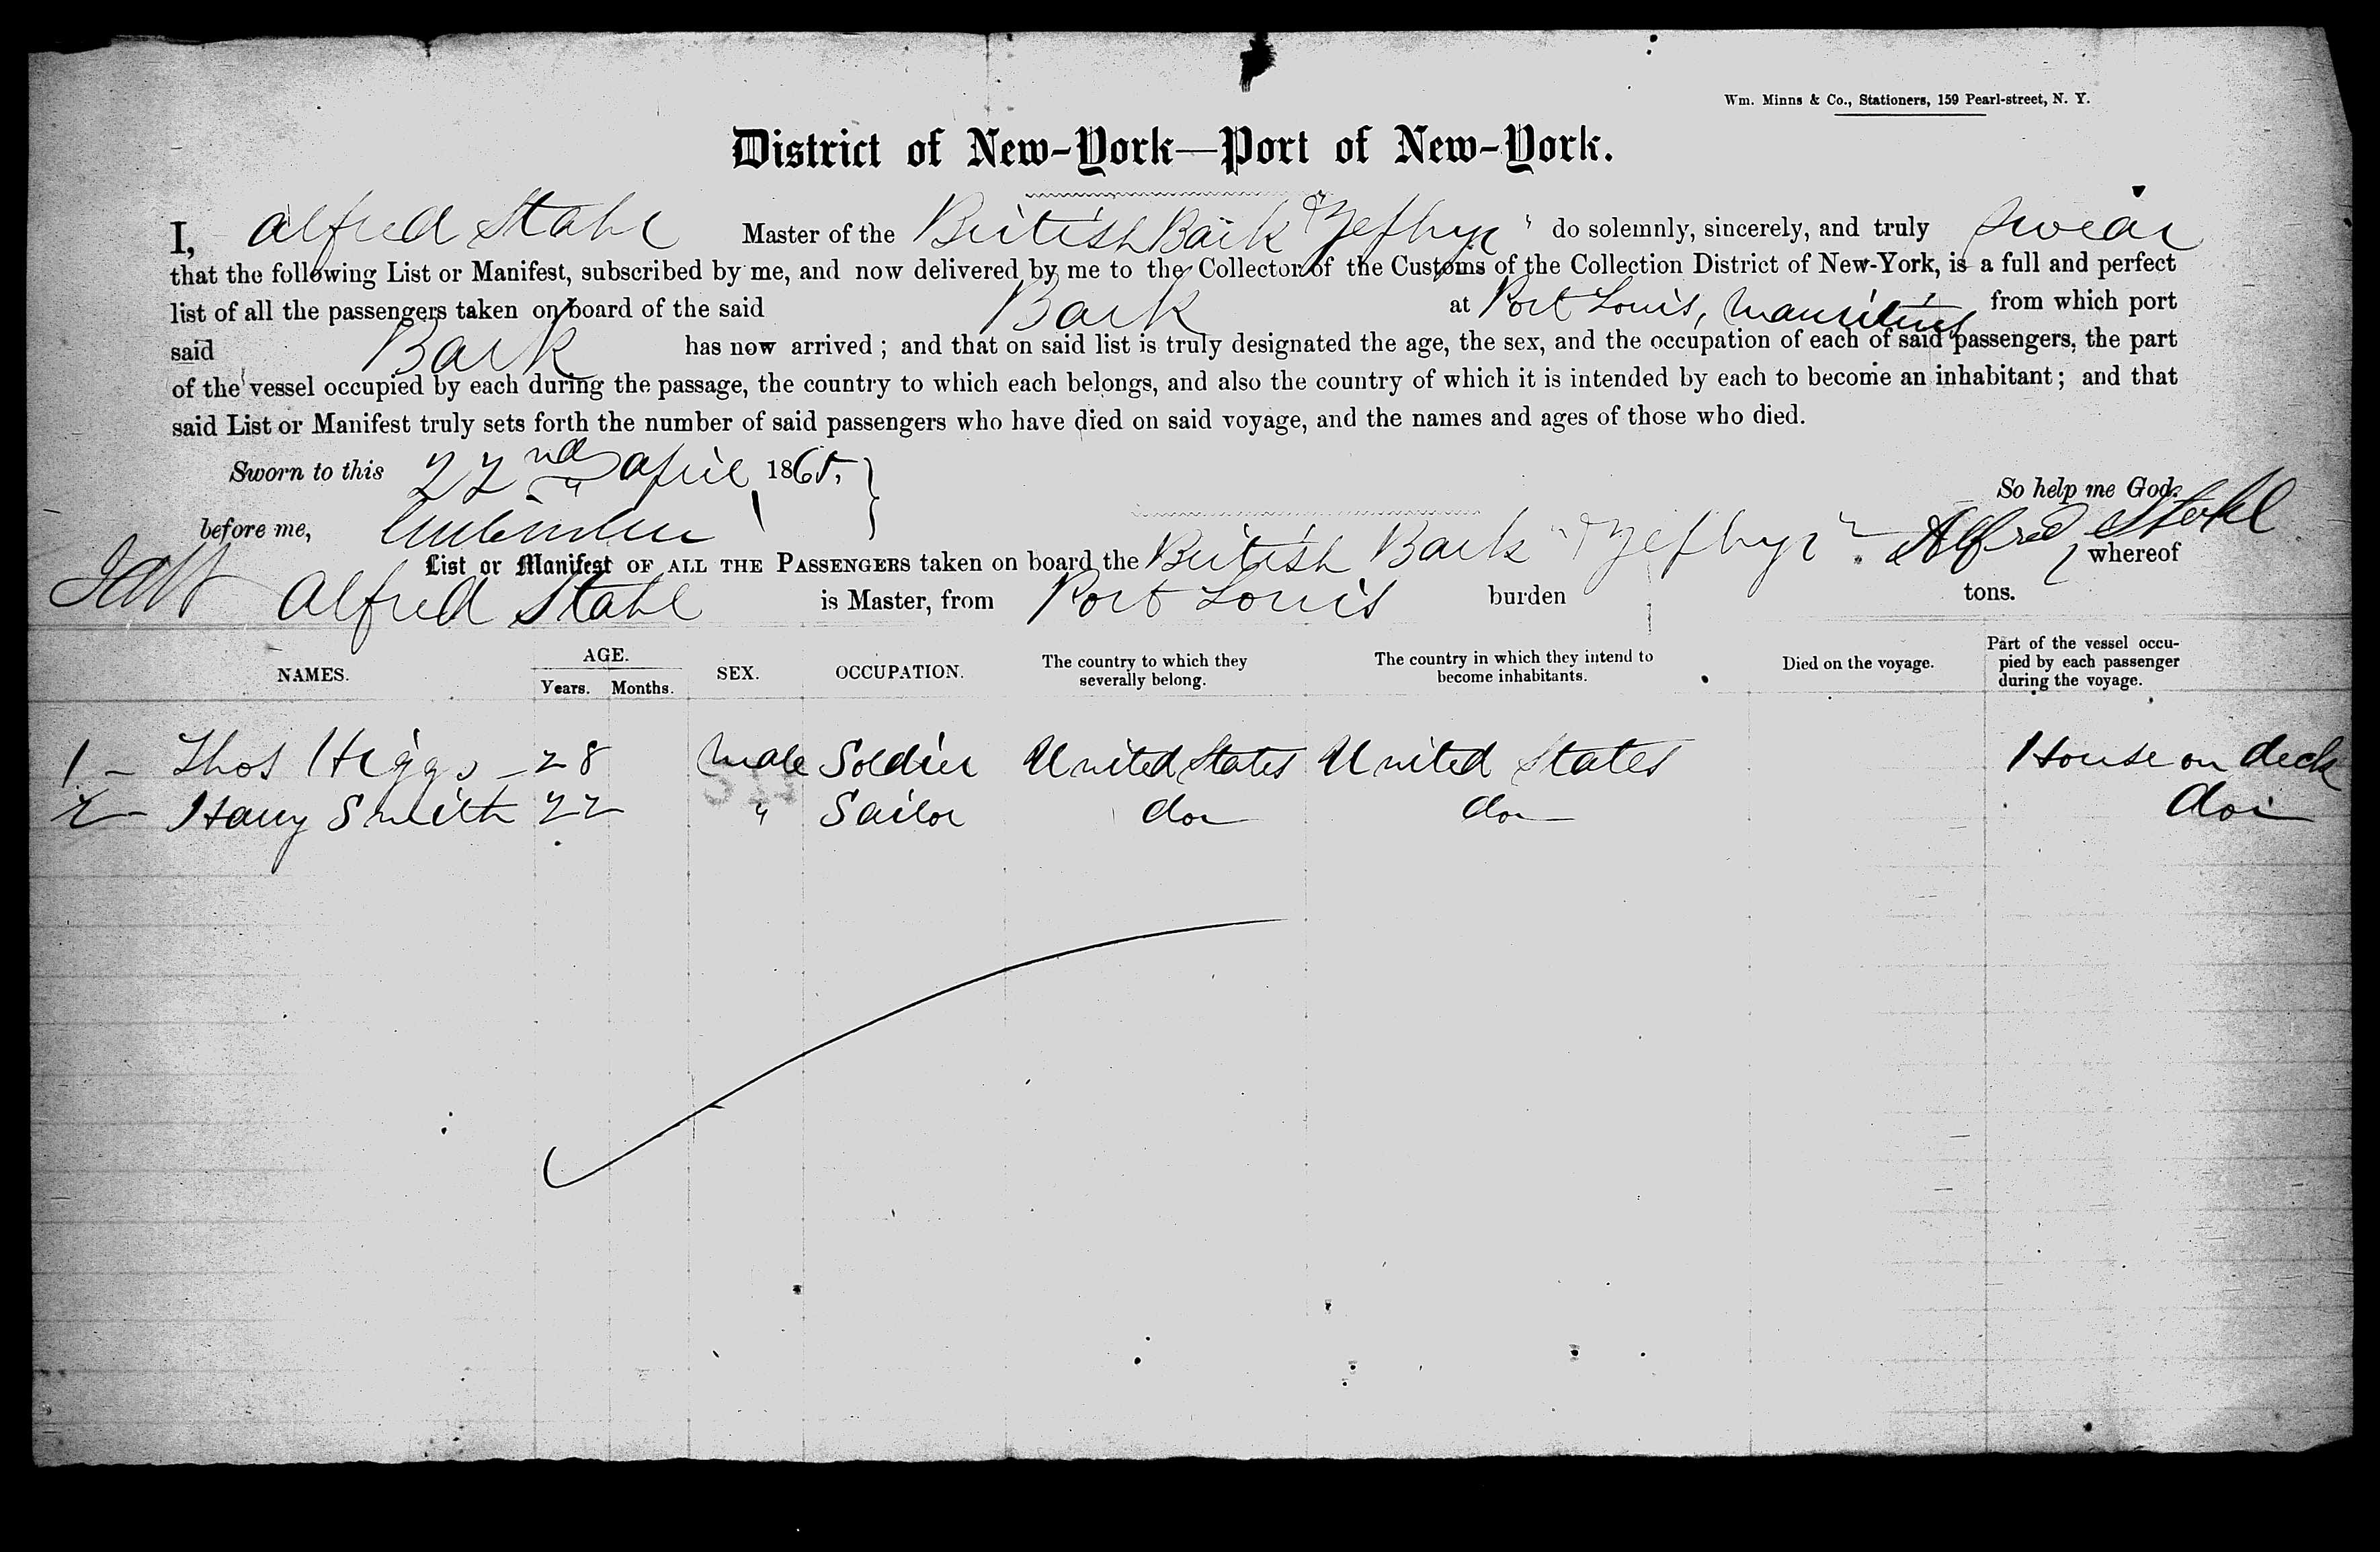 Wm. Minns & Co., Stationers, 159 Pearl-street, N. Y.
District of New-York—Port of New-York.
I, Alfred Stahl Master of the British Bark "Zephyr" do solemnly, sincerely, and truly swear
that the following List or Manifest, subscribed by me, and now delivered by me to the Collector of the Customs of the Collection District of New-York, is a full and perfect
list of all the passengers taken on board of the said Bark at Port Louis, Mauritius from which port
said Bark has now arrived; and that on said list is truly designated the age, the sex, and the occupation of each of said passengers, the part
of the vessel occupied by each during the passage, the country to which each belongs, and also the country of which it is intended by each to become an inhabitant; and that
said List or Manifest truly sets forth the number of said passengers who have died on said voyage, and the names and ages of those who died.
Sworn to this 22nd April 1865,
So help me God.
before me,
Alfred Stahl
List or Manifest OF ALL THE PASSENGERS taken on board the British Bark "Zephyr" whereof
Alfred Stahl is Master, from Port Louis burden tons.
NAMES. AGE. Years. Months. SEX. OCCUPATION. The country to which they severally belong. The country in which they intend to become inhabitants. Died on the voyage. Part of the vessel occupied by each passenger during the voyage.
1 - Thos Higgs - 28 Male Soldier United States United States House on deck
2 - Harry Smith 22 " Sailor do do do